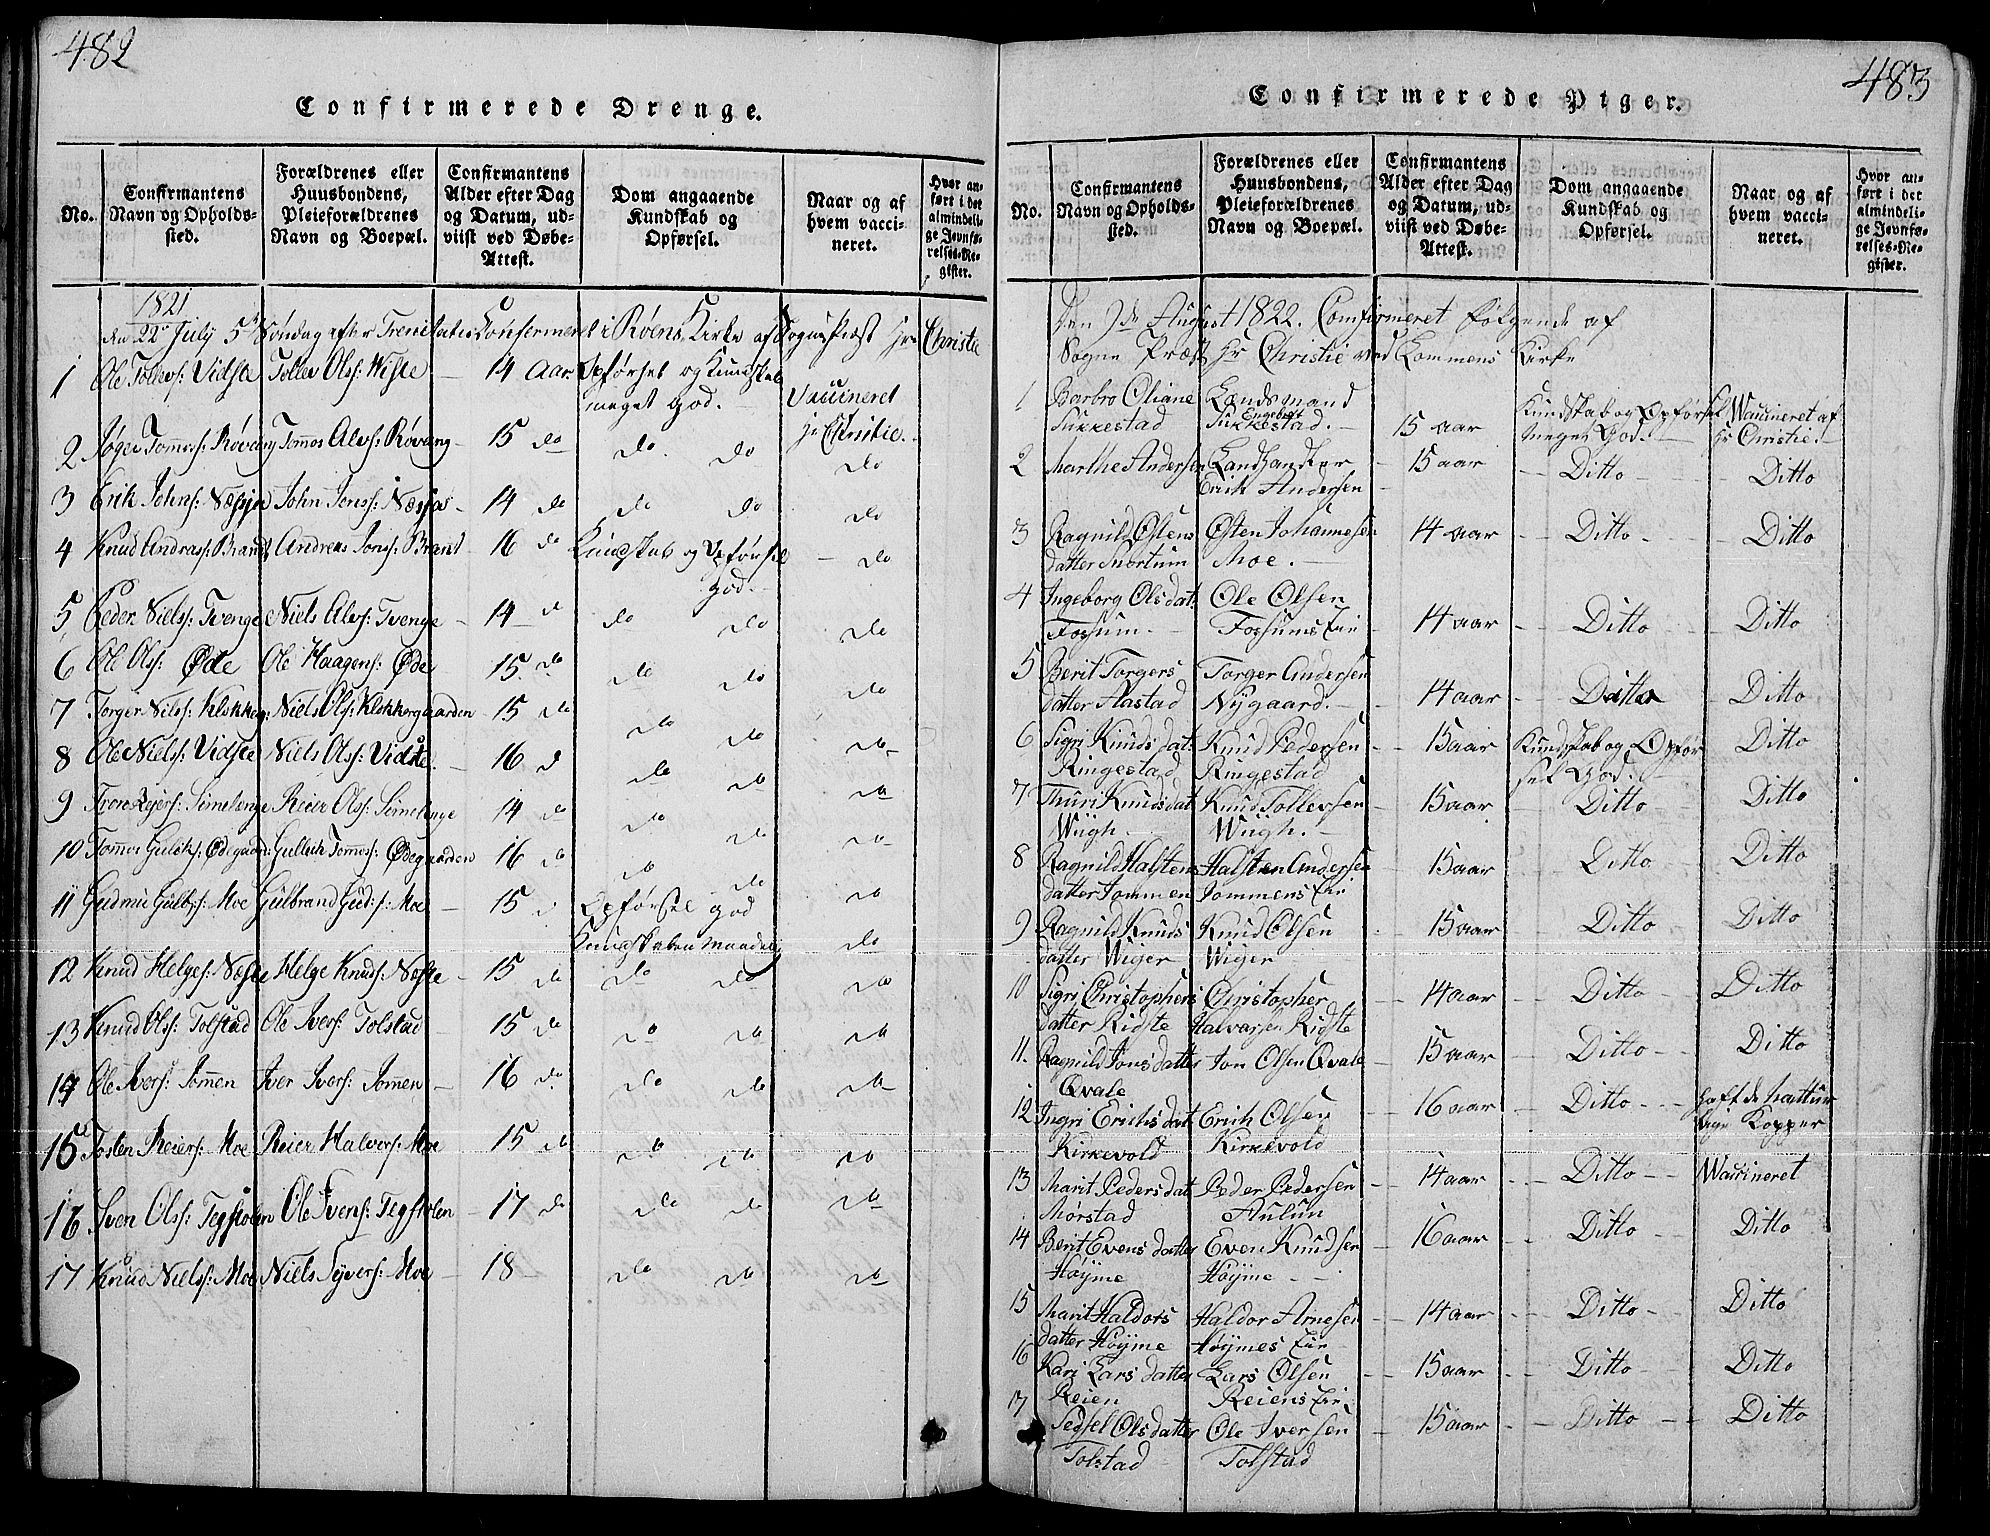 482
Confirmerede Drenge.
No.
Confirmantens Navn og Opholdssted.
Forældrenes eller Huusbondens, Pleieforældrenes Navn og Boepæl.
Confirmantens Alder efter Dag og Datum, udviist ved Døbe-Attest.
Dom angaaende Kundskab og Opførsel.
Naar og af hvem vaccineret.
Hvor anført i det almindelige Jevnførelses-Register.
1821
den 22de July 5te Søndag efter Trenitatis Confermeret i Røens Kirke af Sogne Præst Hr Christie
1 Ole Tollevs: Vidste Tollev Olss: Wiste 14 Aar Opførsel og Kundskab meget god. Vaccineret Hr Christie.
2 Tomess: Røvang Tomos Alvs: Røvang 15 do do do do
3 Erik Johns: Næssja John Jonss: Næssja 14 do do do do
4 Knud Andrass: Brandt Andreas Jonss: Brant 16 do Kundskab og Opførsel god. do
5 Peder Niels: Tvenge Niels Alvs: Tvenge 14 d do do do
6 Ole Olss: Øde Ole Haagens: Øde 15 do do do do
7 Torger Nilss: Klokkeg: Niels Olss: Klokkergaarden 15 do do do do
8 Ole Niels: Vidste Niels Olss: Vidste 16 d do do do
9 Reiers: Simelenge Reier Olss: Simelenge 14 do do do do
10 Tomos Gulchs: Ødegaard: Gullich Tomes: Ødegaarden 16 do do do do
11 Gudmu Gulbs: Moe Gulbrand Gud:s: Moe 15 d Opførsel god Kundskaben maadelig do
12 Knud Helges: Neste Helge Knuds: Neste 15 do do do do
13 Knud Olss: Tolstad Ole Ivers: Tolstad 15 do do do do
14 Ole Ivers: Jomen Iver Ivers: Jomen 16 do do do do
15 Tosten Reiers: Moe Reier Halvors: Moe 15 do do do do
16 Sven Olss: Tegstolen Ole Svens: Tegstolen 17 do do do do
17 Knud Nielss: Moe Niels Syvers: Moe 18 do do do
483
Confirmerede Piger.
No.
Confirmantens Navn og Opholdssted.
Forældrenes eller Huusbondens, Pleieforældrenes Navn og Boepæl.
Confirmantens Alder efter Dag og Datum, udviist ved Døbe-Attest.
Dom angaaende Kundskab og Opførsel.
Naar og af hvem vaccineret.
Hvor anført i det almindelige Jevnførelses-Register.
Den de August 1822. Comfirmeret følgende af
Sogne Præst Hr Christie ved Lommens Kirke
1 Barbro Oliane Sukkestad Landsmand Engebert Sukkestad. 15 aar Kundskab og Opførsel meget God. Waccineret af Hr Christie.
2 Marthe Andersen Landhandler Erich Andersen 15 aar Ditto Ditto
3 Ragnild Østens datter Østen Johannesen Moe. 14 aar Ditto Ditto
4 Ingeborg Olsdat: Fossum Ole Olsen Fossums Eie 14 aar Ditto Ditto
5 Berit Torgers datter Aastad Torger Andersen Nygaard. 14 aar Ditto Ditto
6 Sigri Knuds dat: Ringestad Knud Pedersen Ringestad 15 aar Kundskab og Opførsel God. Ditto
7 Thuri Knudsdat Wiigh Knud Tollevsen Wiigh. 15 aar Ditto Ditto
8 Ragnild Halstens datter Jommen Halsten Andersen Jommens Eie 15 aar Ditto Ditto
9 Ragnild Knuds datter Wiger Knud Olsen Wiger 15 aar Ditto Ditto
10 Sigri Christophers datter Ridste Christopher Halvarsen Ridste 14 aar Ditto Ditto
11. Ragnild Jonsdatter Qvale Jon Olsen Qvale 15 aar Ditto Ditto
12 Ingri Erichsdat Kirkevold Erich Olsen Kirkevold 16 aar Ditto haft de nattur lige Kopper
13 Marit Peders dat Mørstad Peder Pedersen 14 aar Ditto Waccineret
14 Berit Evens datter Høyme Even Knudsen Høyme 16 aar Ditto Ditto
15 Marit Haldors datter Høyme Haldor Arnesen Høymes Eie 14 aar Ditto Ditto
16 Kari Lars datter Reien Lars Olsen Reiens Eie 15 aar Ditto Ditto
17 Sedsel Olsdatter Tolstad Ole Iversen Tolstad 15 aar Ditto Ditto